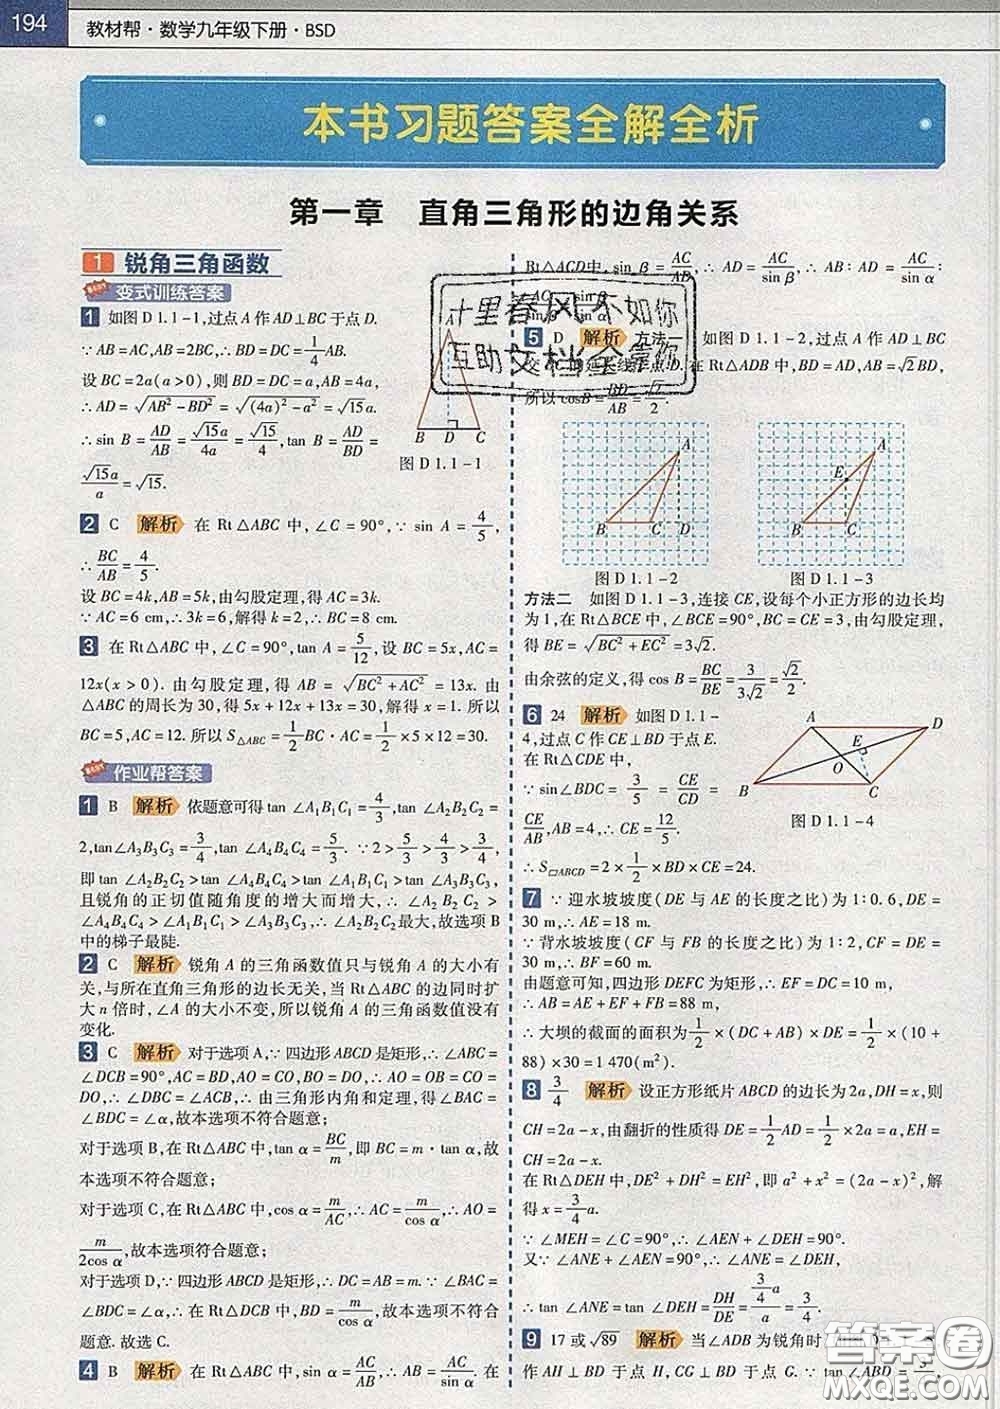 194 教材帮·数学九年级下册·BSD
本书习题答案全解全析
第一章 直角三角形的边角关系
1 锐角三角函数
变式训练答案
1 如图D1.1-1,过点A作AD⊥BC于点D.
∵AB=AC,AB=2BC,∴BD=DC=1/4AB.
设BC=2a(a>0),则BD=DC=a,AB=4a,
∴AD=√(AB²-BD²)=√((4a)²-a²)=√15a.
∴sin B=AD/AB=√15a/4a=√15/4,tan B=AD/BD=
√15a/a=√15.
A
B D C
图D1.1-1
2 C 解析 在Rt△ABC中,∠C=90°,∵sin A=4/5,
∴BC/AB=4/5.
设BC=4k,AB=5k,由勾股定理,得AC=3k.
∵AC=6 cm,∴3k=6,解得k=2,∴BC=8 cm.
3 在Rt△ABC中,∠C=90°,tan A=5/12,设BC=5x,AC=
12x(x>0).由勾股定理,得AB=√(BC²+AC²)=13x.由
△ABC的周长为30,得5x+12x+13x=30,解得x=1.所以
BC=5,AC=12.所以S△ABC=1/2BC·AC=1/2×5×12=30.
作业帮答案
1 B 解析 依题意可得tan∠A₁B₁C₁=4/3,tan∠A₂B₂C₂=
2,tan∠A₃B₃C₃=3/4,tan∠A₄B₄C₄=5/3.∵2>5/3>4/3>3/4,
即tan∠A₂B₂C₂>tan∠A₄B₄C₄>tan∠A₁B₁C₁>tan∠A₃B₃C₃,
且锐角的正切值随角度的增大而增大,∴∠A₂B₂C₂>
∠A₄B₄C₄>∠A₁B₁C₁>∠A₃B₃C₃,∴∠A₂B₂C₂最大,故选项B
中的梯子最陡.
2 C 解析 锐角A的三角函数值只与锐角A的大小有
关,与所在直角三角形的边长无关,当Rt△ABC的边同时扩
大n倍时,∠A的大小不变,所以锐角A的三角函数值没有
变化.
3 C 解析 对于选项A,∵四边形ABCD是矩形,∴∠ABC=
∠DCB=90°,AC=BD,AO=CO,BO=DO,∴AO=OB=CO=
DO,∴∠DBC=∠ACB,∴由三角形内角和定理,得∠BAC=
∠BDC=∠α,故本选项不符合题意;
对于选项B,在Rt△ABC中,tan α=BC/m,即BC=m·tan α,故
本选项不符合题意;
对于选项C,在Rt△ABC中,cos α=m/AC,∴AC=m/cos α,∴AO=
m/2cos α,故本选项符合题意;
对于选项D,∵四边形ABCD是矩形,∴DC=AB=m.∵∠BAC=
∠BDC=∠α,∴在Rt△DCB中,BD=m/cos α,故本选项不符合
题意.故选C.
4 B 解析 在Rt△ABC中,sin α=AC/AB,∴AB=AC/sin α,在
Rt△ACD中,sin β=AC/AD,∴AD=AC/sin β,∴AB:AD=AC/sin α:
AC/sin β=sin β/sin α.
十里春风 不如你
互助文档全靠你
5 D 解析 方法一 如图D1.1-2,过点A作AD⊥BC
交BC的延长线于点D.在Rt△ADB中,BD=AD,AB=√2BD,
所以cosB=BD/AB=√2/2.
A
B C D
图D1.1-2
A
E
B C
图D1.1-3
方法二 如图D1.1-3,连接CE,设每个小正方形的边长均
为1,在Rt△BCE中,∠BCE=90°,BC=CE=3,由勾股定理,
得BE=√(BC²+EC²)=3√2.
由余弦的定义,得cos B=BC/BE=3/3√2=√2/2.
6 24 解析 如图D1.1-
4,过点C作CE⊥BD于点E.
在Rt△CDE中,
∵sin∠BDC=3/5=CE/CD=
CE/AB,AB=4,∴CE=12/5,
∴S▱ABCD=2×1/2×BD×CE=24.
A D
E
O
B C
图D1.1-4
7 ∵迎水坡坡度(DE与AE的长度之比)为1:0.6,DE=
30 m,∴AE=18 m.
∵背水坡坡度(CF与FB的长度之比)为1:2,CF=DE=
30 m,∴BF=60 m.
由题意可知,四边形DEFC为矩形,∴EF=DC=10 m,
∴AB=AE+EF+FB=88 m,
∴大坝的截面的面积为1/2×(DC+AB)×DE=1/2×(10+
88)×30=1 470(m²).
8 3/4 解析 设正方形纸片ABCD的边长为2a,DH=x,则
CH=2a-x,由翻折的性质得DE=1/2AD=1/2×2a=a,EH=
CH=2a-x.
在Rt△DEH中,DE²+DH²=EH²,即a²+x²=(2a-x)²,解
得x=3/4a.
∵∠MEH=∠C=90°,∴∠AEN+∠DEH=90°.
又∵∠ANE+∠AEN=90°,∴∠ANE=∠DEH,
∴tan∠ANE=tan∠DEH=DH/DE=3/4a/a=3/4.
9 17或√89 解析 当∠ADB为锐角时
作AH⊥BD于点H,CG⊥BD于点G.∵tan∠ABD=
答案圈
MXQE.COM